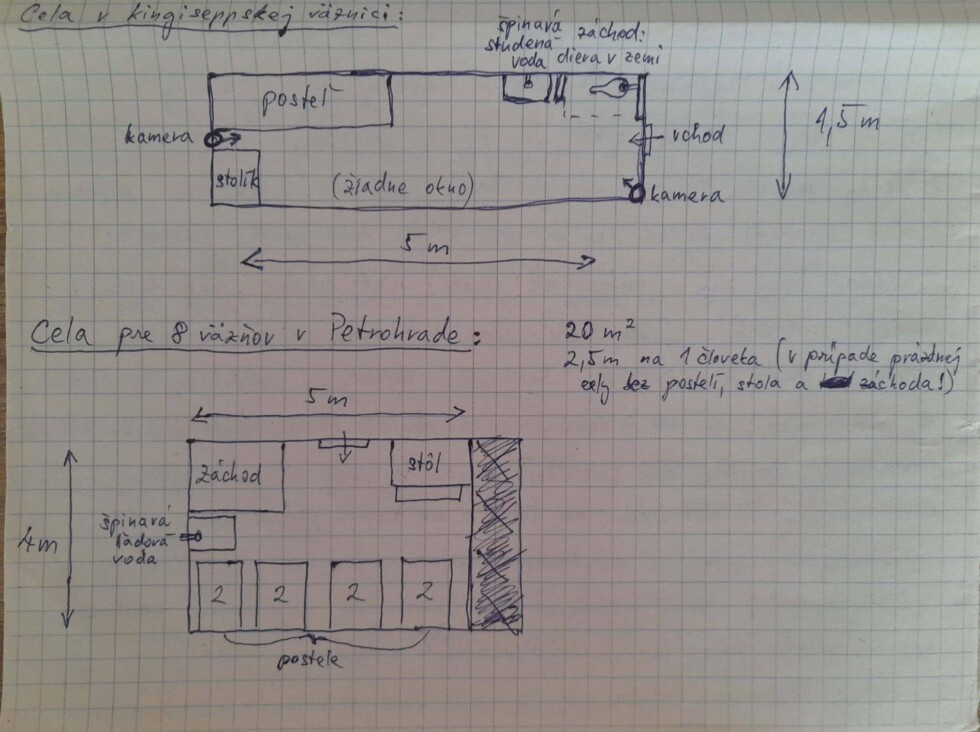 Cela v kingiseppskej väznici:
špinavá
studená
voda
záchod:
diera v zemi
posteľ
kamera
vchod
1,5 m
stolík
(žiadne okno)
kamera
5 m
Cela pre 8 väzňov v Petrohrade:
20 m²
2,5 m na 1 človeka (v prípade prázdnej
cely bez postelí, stola a záchoda!)
5 m
záchod
stôl
špinavá
ľadová
voda
4 m
2 2 2 2
postele